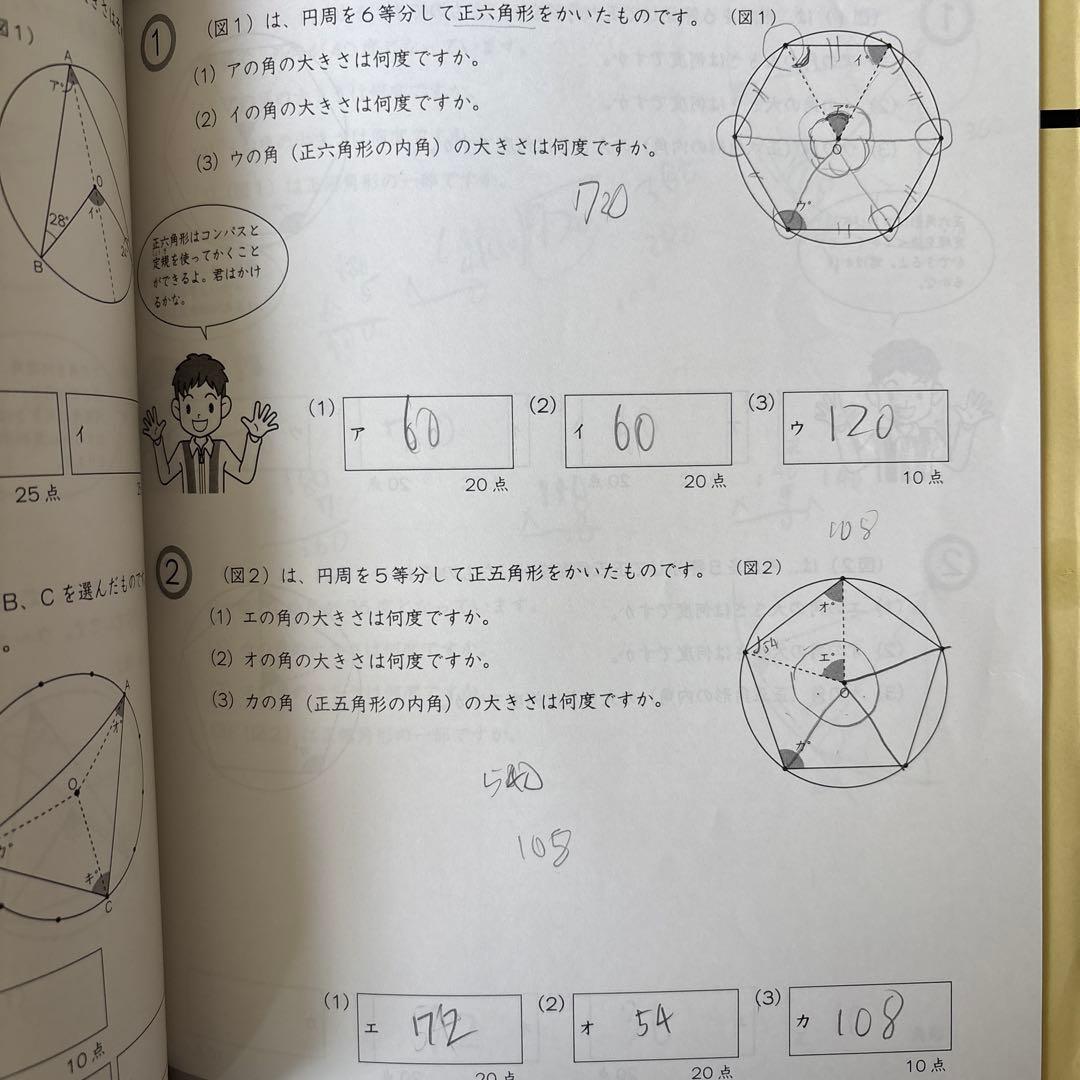 図1)
A
ア
O
イ
28°
B
25点
イ
B、Cを選んだものです
。
A
オ
O
キ
C
10点
1
(図1)は、円周を6等分して正六角形をかいたものです。
(1) アの角の大きさは何度ですか。
(2) イの角の大きさは何度ですか。
(3) ウの角(正六角形の内角)の大きさは何度ですか。
720
(図1)
イ
ア
O
ウ
正六角形はコンパスと
定規を使ってかくこと
ができるよ。君はかけ
るかな。
(1) ア 60 20点
(2) イ 60 20点
(3) ウ 120 10点
108
2
(図2)は、円周を5等分して正五角形をかいたものです。
(1) エの角の大きさは何度ですか。
(2) オの角の大きさは何度ですか。
(3) カの角(正五角形の内角)の大きさは何度ですか。
540
108
(図2)
オ
54
エ
O
カ
(1) エ 72 20点
(2) オ 54 20点
(3) カ 108 10点